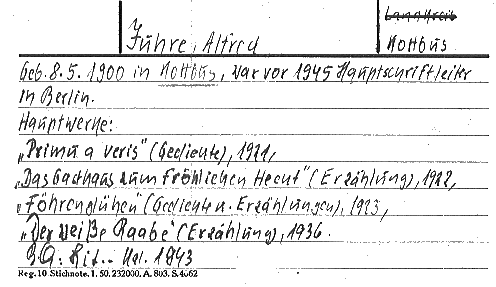 Landkreis
Führe, Alfred
Kottbus
Geb. 8.5.1900 in Kottbus, war vor 1945 Hauptschriftleiter
in Berlin.
Hauptwerke:
„Primula veris" (Gedichte), 1921,
„Das Gasthaus zum fröhlichen Hecht" (Erzählung), 1922,
„Föhrenglühen" (Gedichte u. Erzählungen), 1923,
„Der weiße Raabe" (Erzählung), 1936.
Lit.- Kal. 1943
Reg. 10 Stichnote. I. 50. 232000. A. 803. S. 4062